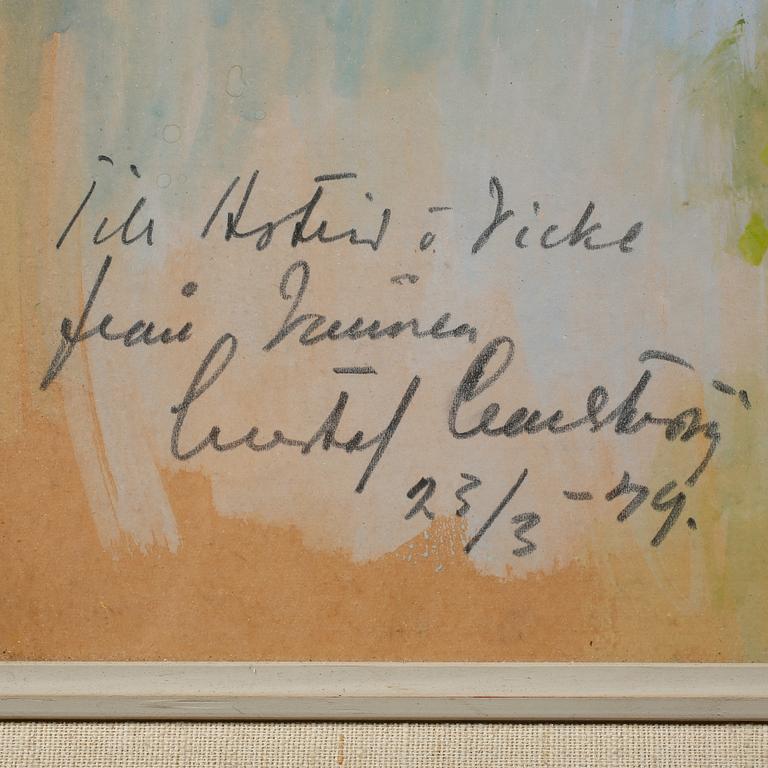 Till Astrid o Vicke
från Vännen
Gustaf Carlström
23/3 - 79.